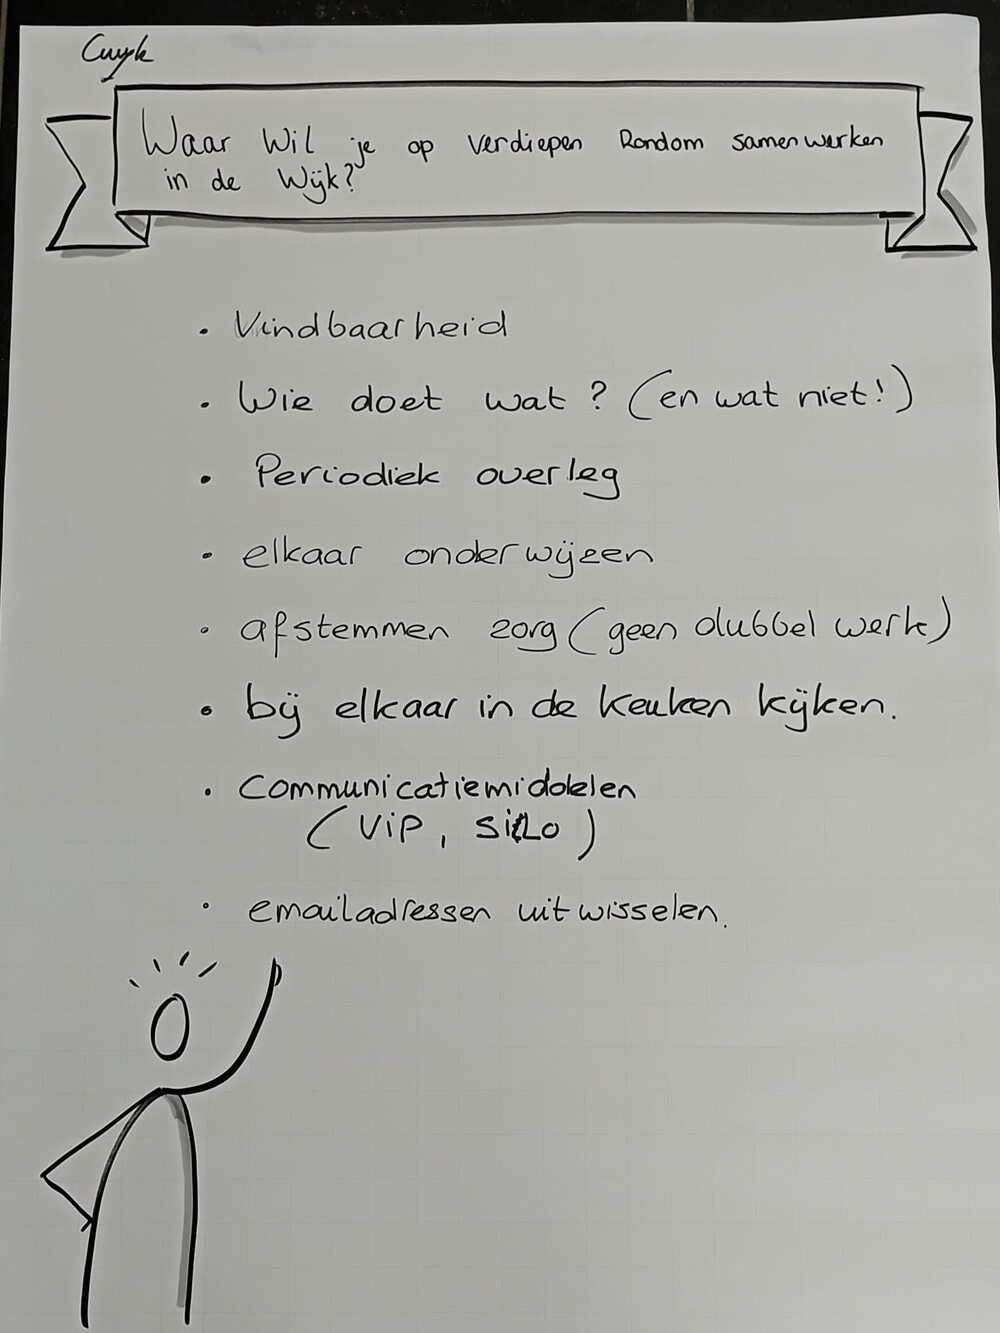 Cuyk
Waar Wil je op verdiepen Rondom samenwerken
in de Wijk?
• Vindbaarheid
• Wie doet wat? (en wat niet!)
• Periodiek overleg
• elkaar onderwijzen
• afstemmen zorg (geen dubbel werk)
• bij elkaar in de keuken kijken.
• Communicatiemiddelen
(ViP, Silo)
• emailadressen uitwisselen.